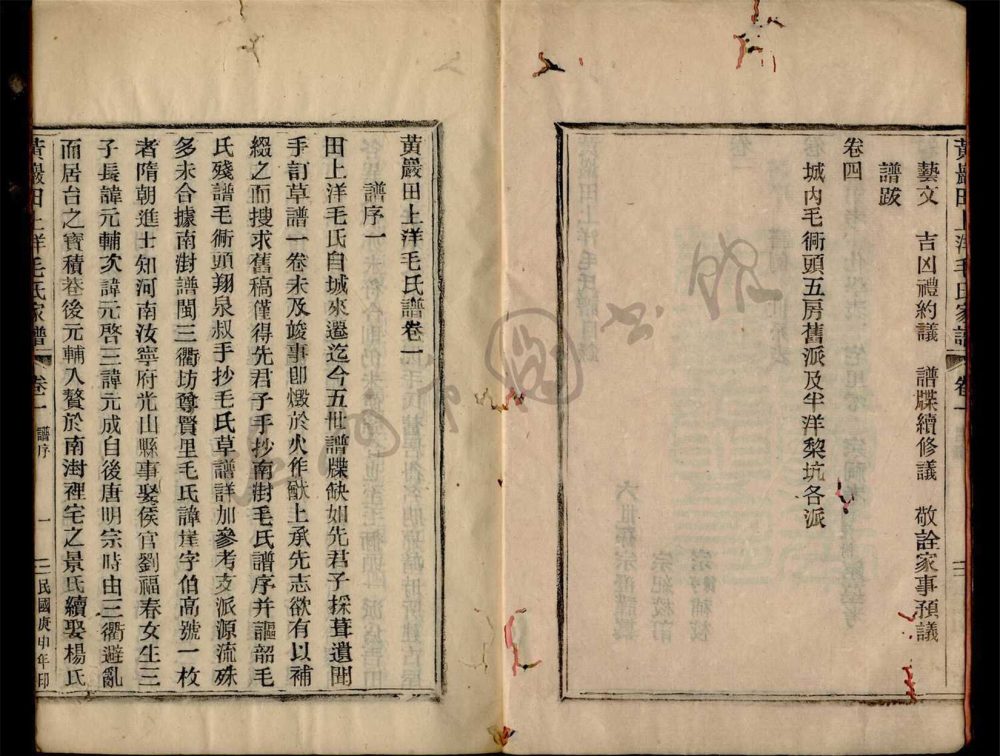 黃巖田上洋毛氏家譜 卷一 二
藝文 吉凶禮約議 譜牒續修議 敬詮家事預議
譜跋
卷四
城內毛衕頭五房舊派及半洋黎坑各派
黃巖田上洋毛氏譜卷一
譜序一
田上洋毛氏自城來遷迄今五世譜牒缺如先君子採葺遺聞
手訂草譜一卷未及竣事卽燬於火作猷上承先志欲有以補
綴之而搜求舊稿僅得先君子手抄南澍毛氏譜序并謳韶毛
氏殘譜毛衕頭翔泉叔手抄毛氏草譜詳加參考支派源流殊
多未合據南澍譜閩三衢坊尊賢里毛氏諱崖字伯高號一枚
者隋朝進士知河南汝寧府光山縣事娶侯官劉福春女生三
子長諱元輔次諱元啓三諱元成自後唐明宗時由三衢避亂
而居台之寶積巷後元輔入贅於南澍裡宅之景氏續娶楊氏
黃巖田上洋毛氏家譜 卷一 譜序 一 民國庚申年印